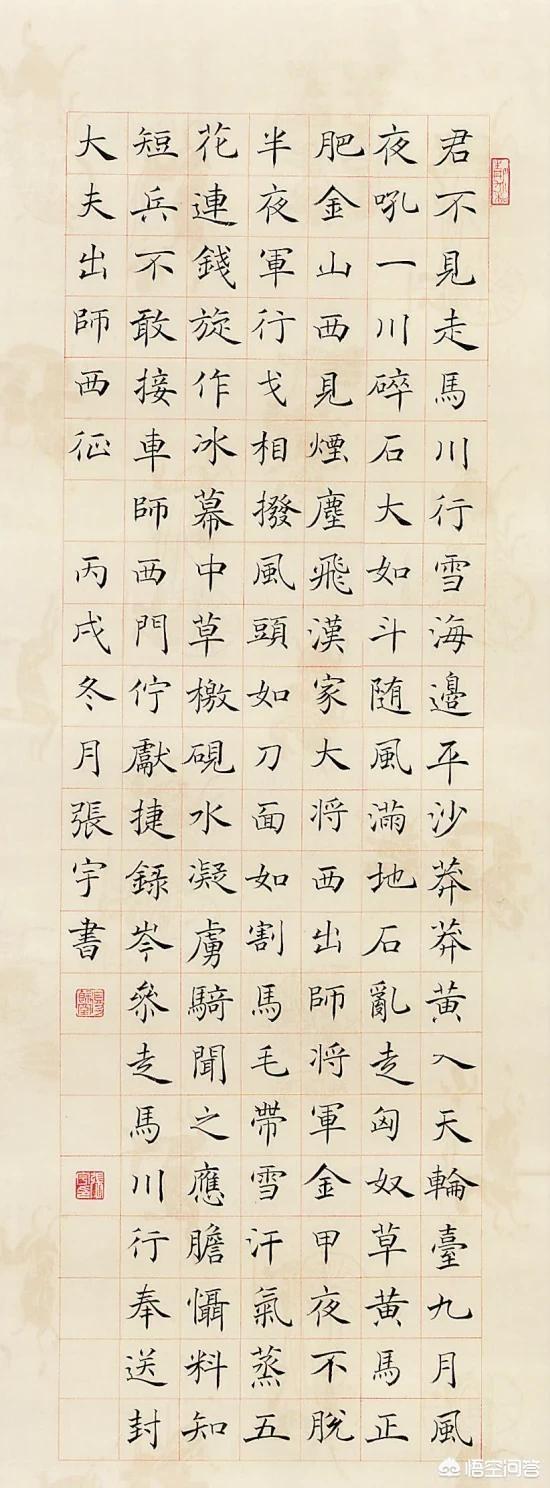 君不見走馬川行雪海邊平沙莽莽黃入天輪臺九月風
夜吼一川碎石大如斗随風滿地石亂走匈奴草黃馬正
肥金山西見煙塵飛漢家大將西出師將軍金甲夜不脫
半夜軍行戈相撥風頭如刀面如割馬毛帶雪汗氣蒸五
花連錢旋作冰幕中草檄硯水凝虜騎聞之應膽懾料知
短兵不敢接車師西門佇獻捷錄岑參走馬川行奉送封
大夫出師西征 丙戌冬月張宇書
悟空问答